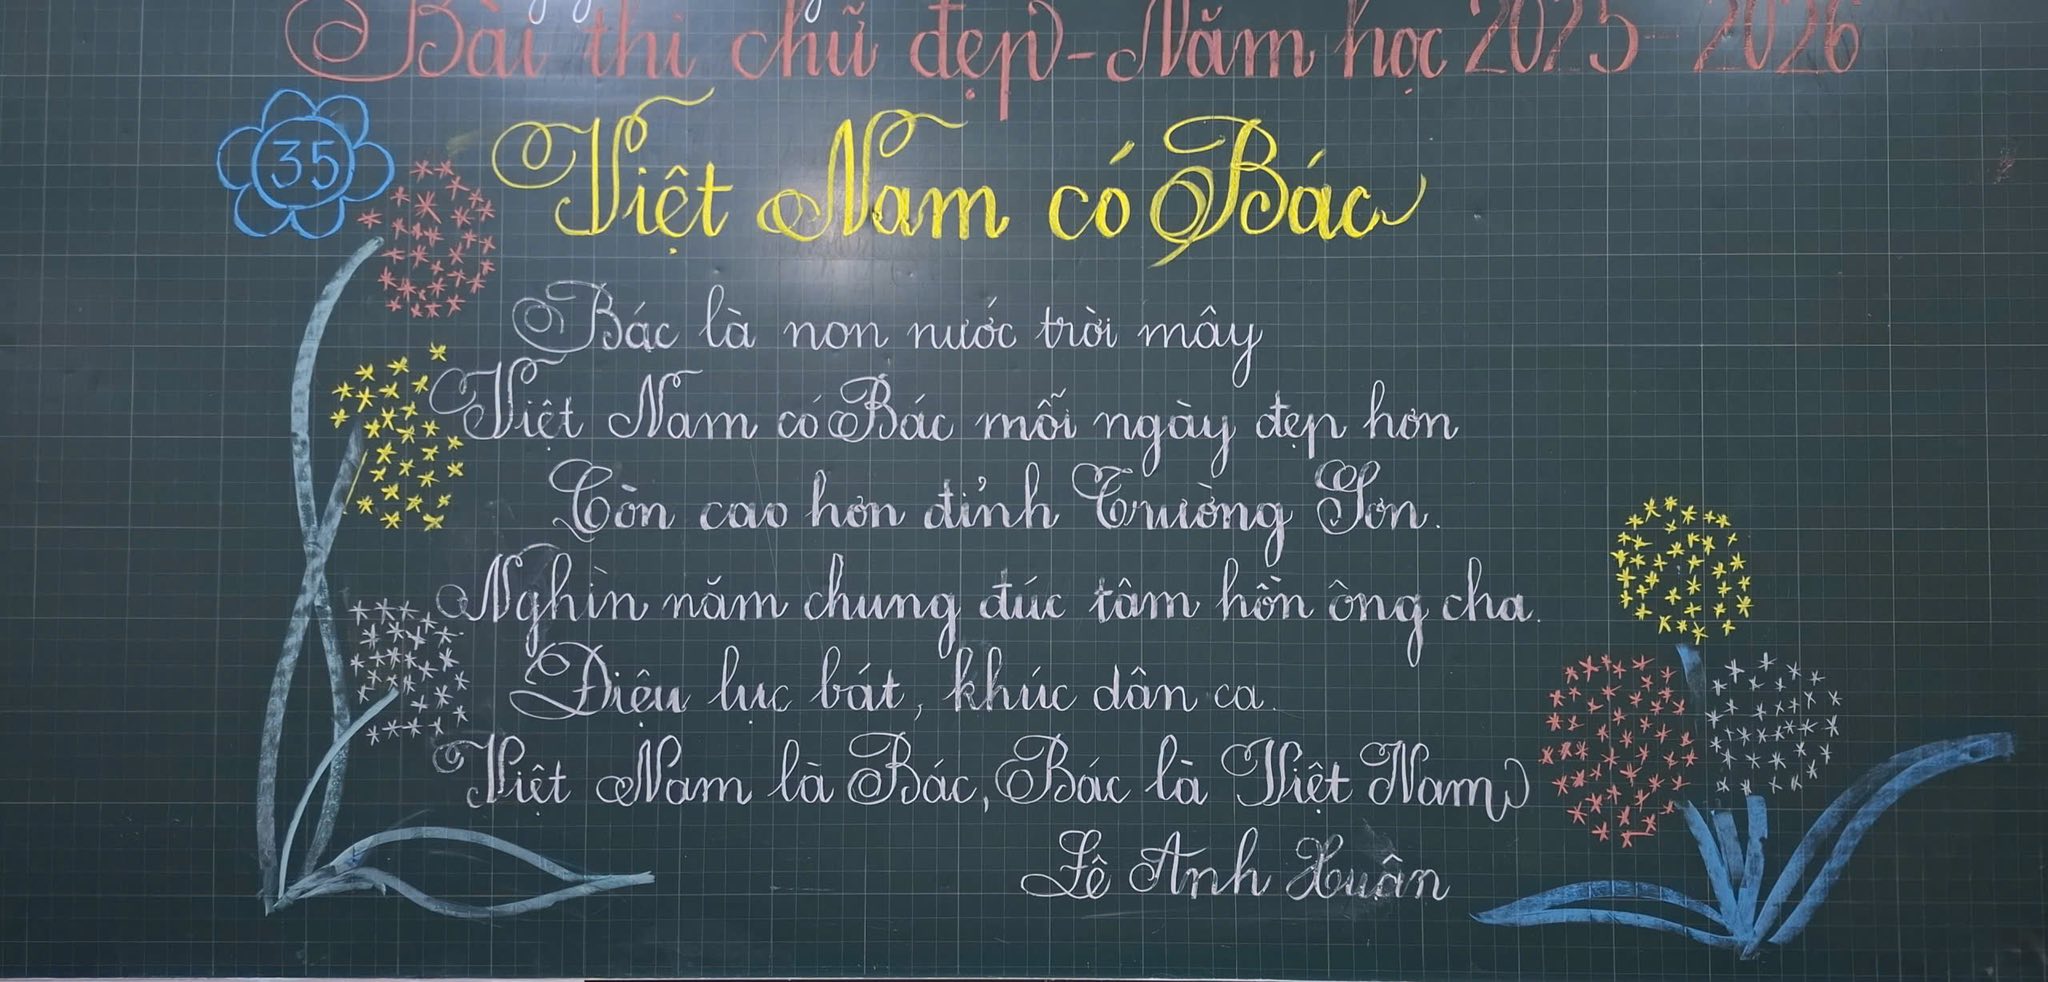 Bài thi chữ đẹp - Năm học 2025 - 2026
35
Việt Nam có Bác
Bác là non nước trời mây
Việt Nam có Bác mỗi ngày đẹp hơn
Còn cao hơn đỉnh Trường Sơn.
Nghìn năm chung đúc tâm hồn ông cha.
Điệu lục bát, khúc dân ca.
Việt Nam là Bác, Bác là Việt Nam
Lê Anh Xuân